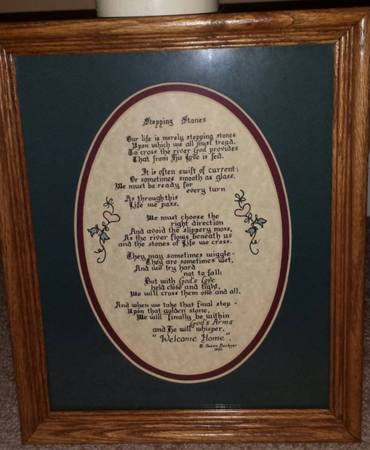 Stepping Stones
Our life is merely stepping stones
Upon which we all must tread.
To cross the river God provides
That from His Love is fed.
It is often swift of current;
Or sometimes smooth as glass.
We must be ready for
every turn
As through this
Life we pass.
We must choose the
right direction
And avoid the slippery moss,
As the river flows beneath us
and the stones of Life we cross.
They may sometimes wiggle-
They are sometimes wet,
And we try hard
not to fall;
But with God's Love
held close and tight,
We will cross them one and all.
And when we take that final step -
Upon that golden stone,
We will finally be within
God's Arms
and He will whisper,
"Welcome Home".